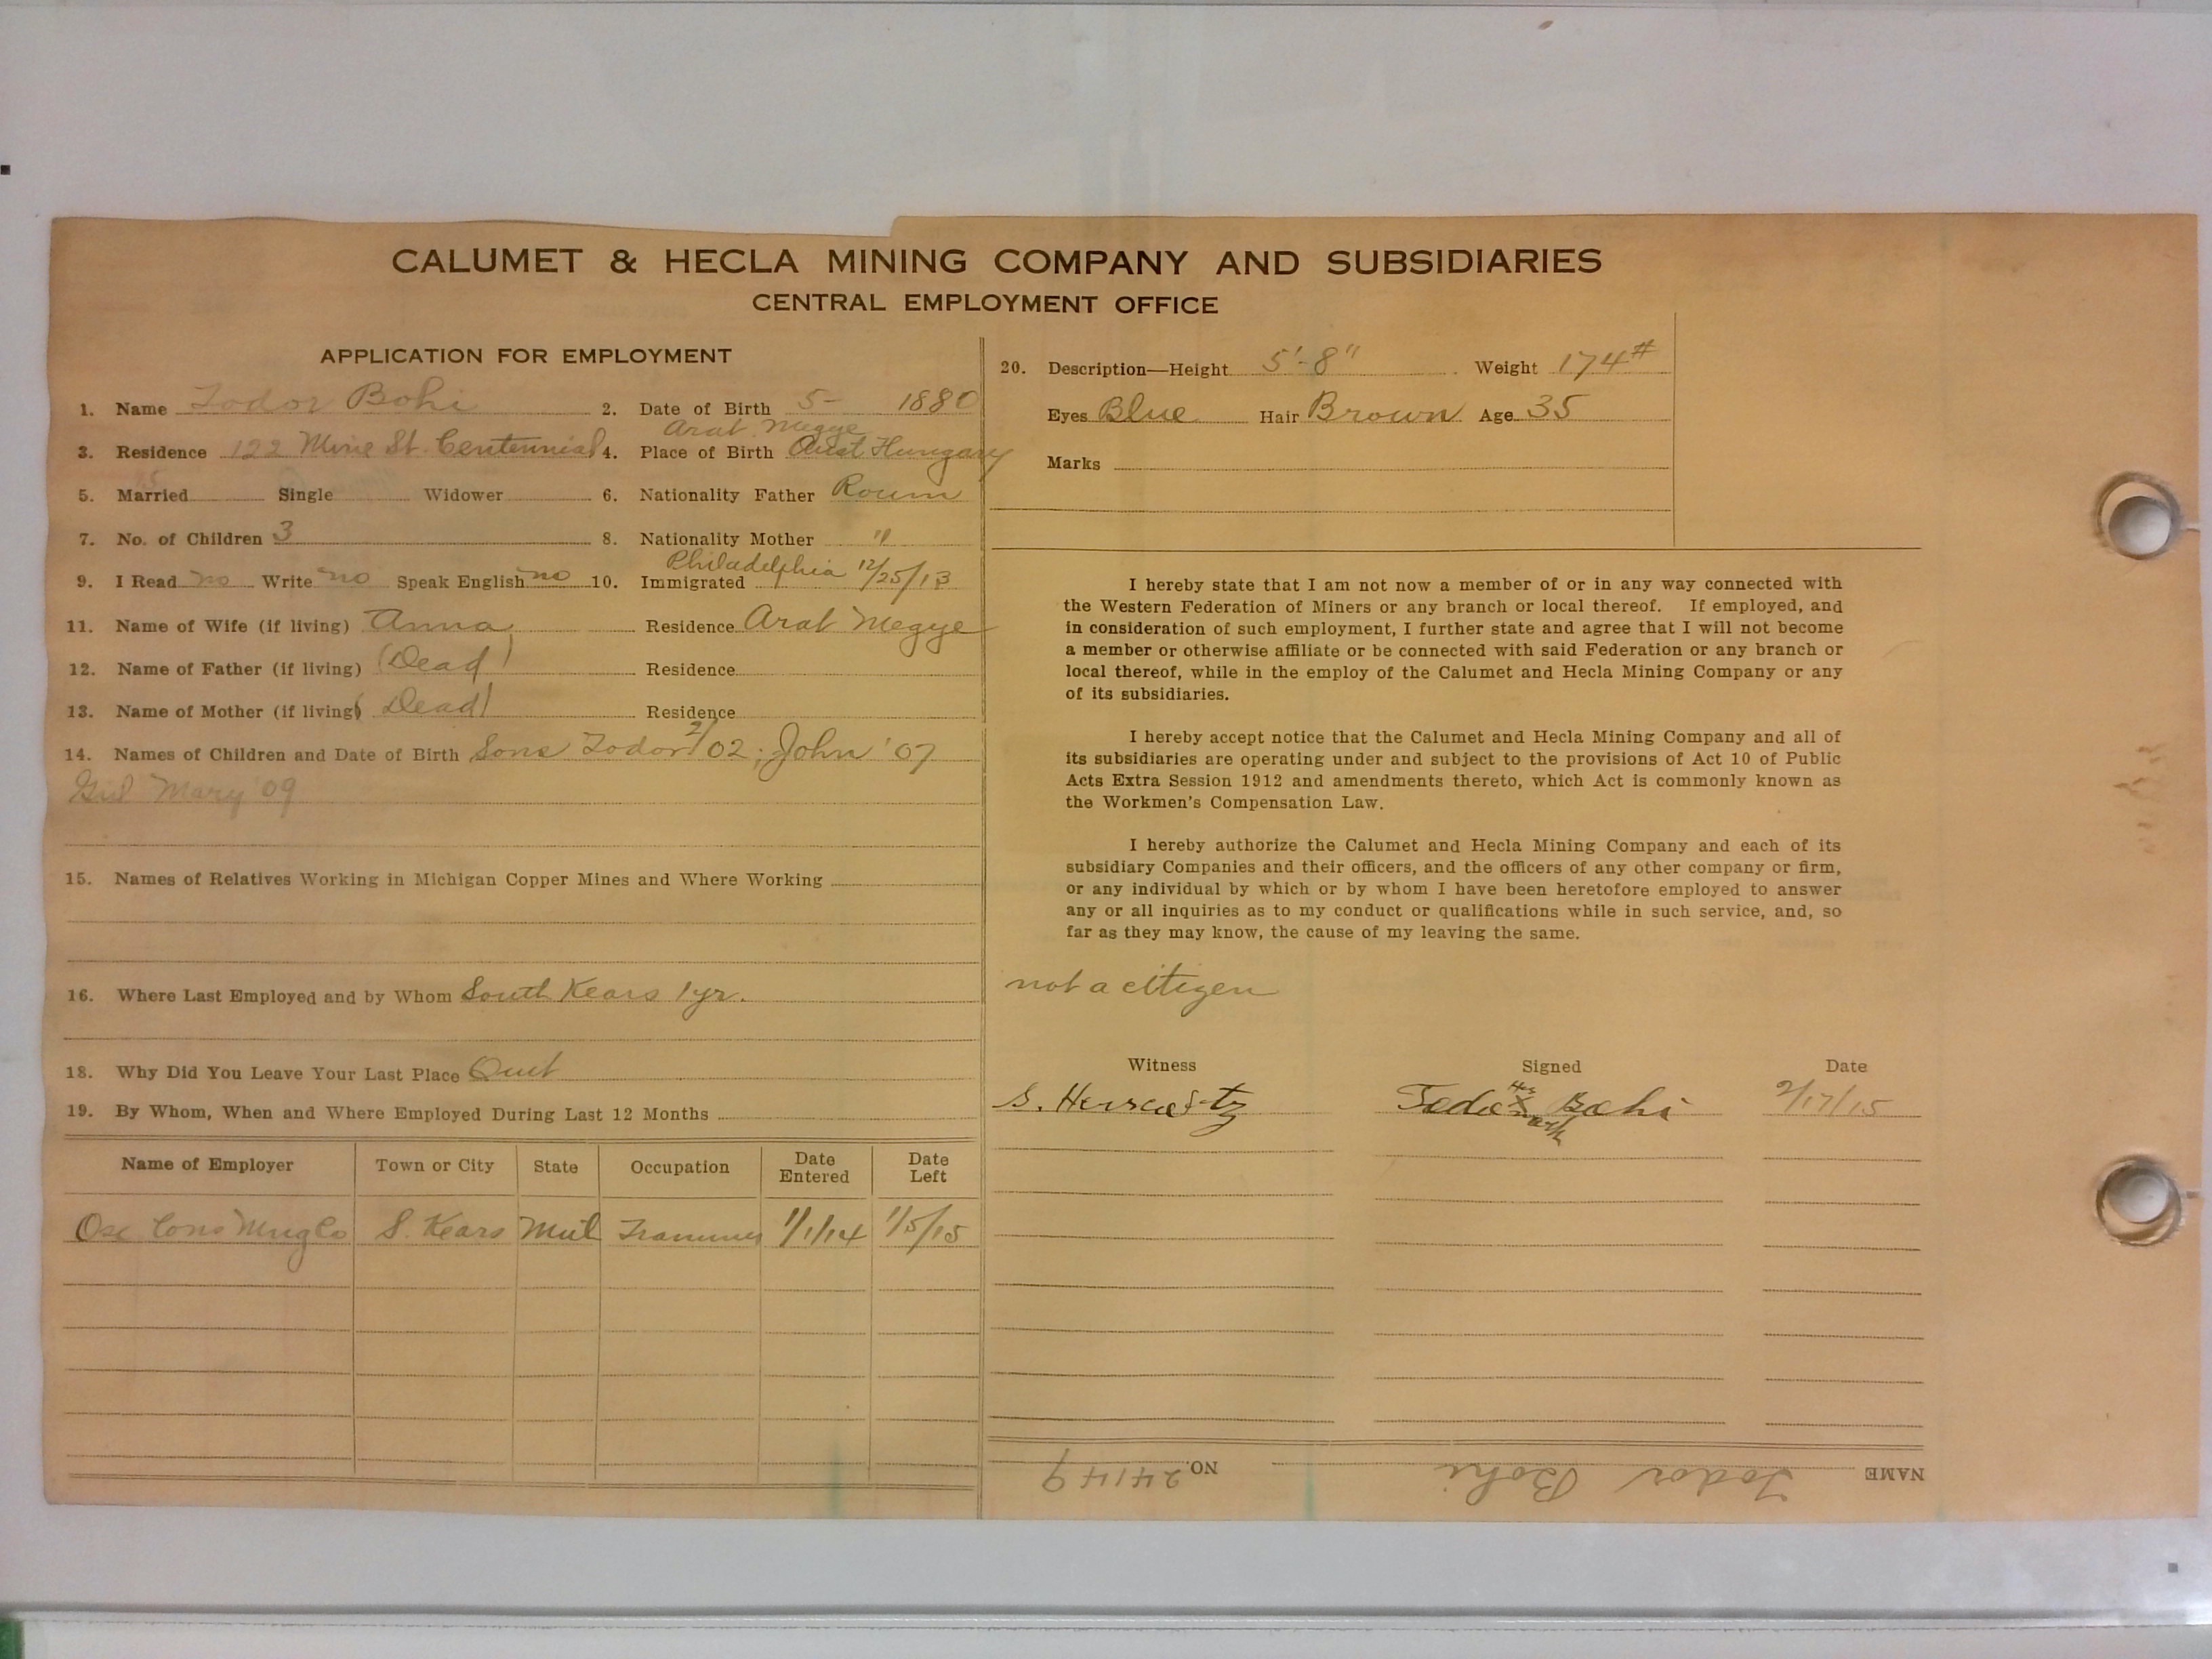 CALUMET & HECLA MINING COMPANY AND SUBSIDIARIES
CENTRAL EMPLOYMENT OFFICE
APPLICATION FOR EMPLOYMENT
1. Name Todor Bohi 2. Date of Birth 5- 1880
Arat Megye
3. Residence 122 Mine St. Centennial 4. Place of Birth Aust Hungary
5. Married Single Widower 6. Nationality Father Roum
7. No. of Children 3 8. Nationality Mother "
Philadelphia
9. I Read no Write no Speak English no 10. Immigrated 12/25/13
11. Name of Wife (if living) Anna Residence Arat Megye
12. Name of Father (if living) (Dead) Residence
13. Name of Mother (if living) (Dead) Residence
14. Names of Children and Date of Birth Sons Todor 2/02; John '07
Girl Mary '09
15. Names of Relatives Working in Michigan Copper Mines and Where Working
16. Where Last Employed and by Whom South Kears 1 yr.
18. Why Did You Leave Your Last Place Quit
19. By Whom, When and Where Employed During Last 12 Months
Name of Employer Town or City State Occupation Date Entered Date Left
Osc Cons Mng Co S. Kears Mich Trammer 1/1/14 1/5/15
20. Description—Height 5'-8" Weight 174#
Eyes Blue Hair Brown Age 35
Marks
I hereby state that I am not now a member of or in any way connected with
the Western Federation of Miners or any branch or local thereof. If employed, and
in consideration of such employment, I further state and agree that I will not become
a member or otherwise affiliate or be connected with said Federation or any branch or
local thereof, while in the employ of the Calumet and Hecla Mining Company or any
of its subsidiaries.
I hereby accept notice that the Calumet and Hecla Mining Company and all of
its subsidiaries are operating under and subject to the provisions of Act 10 of Public
Acts Extra Session 1912 and amendments thereto, which Act is commonly known as
the Workmen's Compensation Law.
I hereby authorize the Calumet and Hecla Mining Company and each of its
subsidiary Companies and their officers, and the officers of any other company or firm,
or any individual by which or by whom I have been heretofore employed to answer
any or all inquiries as to my conduct or qualifications while in such service, and, so
far as they may know, the cause of my leaving the same.
not a citizen
Witness Signed Date
S. Todor His X mark Bohi 2/17/15
NAME Todor Bohi NO. 24149